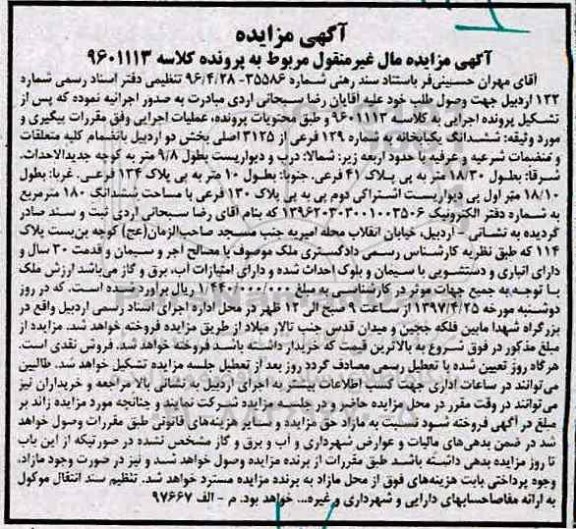 آگهی مزایده
آگهی مزایده مال غیرمنقول مربوط به پرونده کلاسه ۹۶۰۱۱۱۳
آقای مهران حسینی‌فر باستناد سند رهنی شماره ۳۵۵۸۶-۹۶/۴/۲۸ تنظیمی دفتر اسناد رسمی شماره
۱۲۲ اردبیل جهت وصول طلب خود علیه آقایان رضا سبحانی اردی مبادرت به صدور اجرائیه نموده که پس از
تشکیل پرونده اجرایی به کلاسه ۹۶۰۱۱۱۳ و طبق محتویات پرونده، عملیات اجرایی وفق مقررات پیگیری و
مورد وثیقه: ششدانگ یکبابخانه به شماره ۱۲۹ فرعی از ۳۱۲۵ اصلی بخش دو اردبیل بانضمام کلیه متعلقات
و منضمات شرعیه و عرفیه با حدود اربعه زیر: شمالا: درب و دیواریست بطول ۹/۸ متر به کوچه جدیدالاحداث.
شرقا: بطول ۱۸/۳۰ متر به پلاک ۴۱ فرعی. جنوبا: بطول ۱۰ متر به پی پلاک ۱۳۴ فرعی. غربا: بطول
۱۸/۱۰ متر اول پی دیواریست اشتراکی دوم پی به پی پلاک ۱۳۰ فرعی با مساحت ششدانگ ۱۸۰ مترمربع
به شماره دفتر الکترونیک ۱۳۹۶۲۰۳۰۳۰۰۱۰۰۳۵۰۶ که بنام آقای رضا سبحانی اردی ثبت و سند صادر
گردیده به نشانی - اردبیل، خیابان انقلاب محله امیریه جنب مسجد صاحب‌الزمان(عج) کوچه بن‌بست پلاک
۱۱۴ که طبق نظریه کارشناس رسمی دادگستری ملک موصوف با مصالح آجر و سیمان و قدمت ۳۰ سال و
دارای انباری و دستشویی با سیمان و بلوک احداث شده و دارای امتیازات آب، برق و گاز می‌باشد ارزش ملک
با توجه به جمیع جهات موثر در کارشناسی به مبلغ ۱/۴۴۰/۰۰۰/۰۰۰ ریال برآورد شده است. که در روز
دوشنبه مورخه ۱۳۹۷/۴/۲۵ از ساعت ۹ صبح الی ۱۲ ظهر در محل اداره اجرای اسناد رسمی اردبیل واقع در
بزرگراه شهدا مابین فلکه ججین و میدان قدس جنب تالار میلاد از طریق مزایده فروخته خواهد شد. مزایده از
مبلغ مذکور در فوق شروع به بالاترین قیمت که خریدار داشته باشد فروخته خواهد شد. فروش نقدی است.
هرگاه روز تعیین شده با تعطیل رسمی مصادف گردد روز بعد از تعطیل جلسه مزایده تشکیل خواهد شد. طالبین
می‌توانند در ساعات اداری جهت کسب اطلاعات بیشتر به اجرای اردبیل به نشانی بالا مراجعه و خریداران نیز
می‌توانند در وقت مقرر در محل مزایده حاضر و در جلسه مزایده شرکت نمایند و چنانچه مورد مزایده زائد بر
مبلغ در آگهی فروخته شود نسبت به مازاد حق مزایده و سایر هزینه‌های قانونی طبق مقررات وصول خواهد
شد در ضمن بدهی‌های مالیات و عوارض شهرداری و آب و برق و گاز مشخص نشده در صورتیکه از این باب
تا روز مزایده بدهی داشته باشد طبق مقررات از برنده مزایده وصول خواهد شد و نیز در صورت وجود مازاد،
وجوه پرداختی بابت هزینه‌های فوق از محل مازاد به برنده مزایده مسترد خواهد شد. تنظیم سند انتقال موکول
به ارائه مفاصاحسابهای دارایی و شهرداری و غیره... خواهد بود. م - الف ۹۷۶۶۷